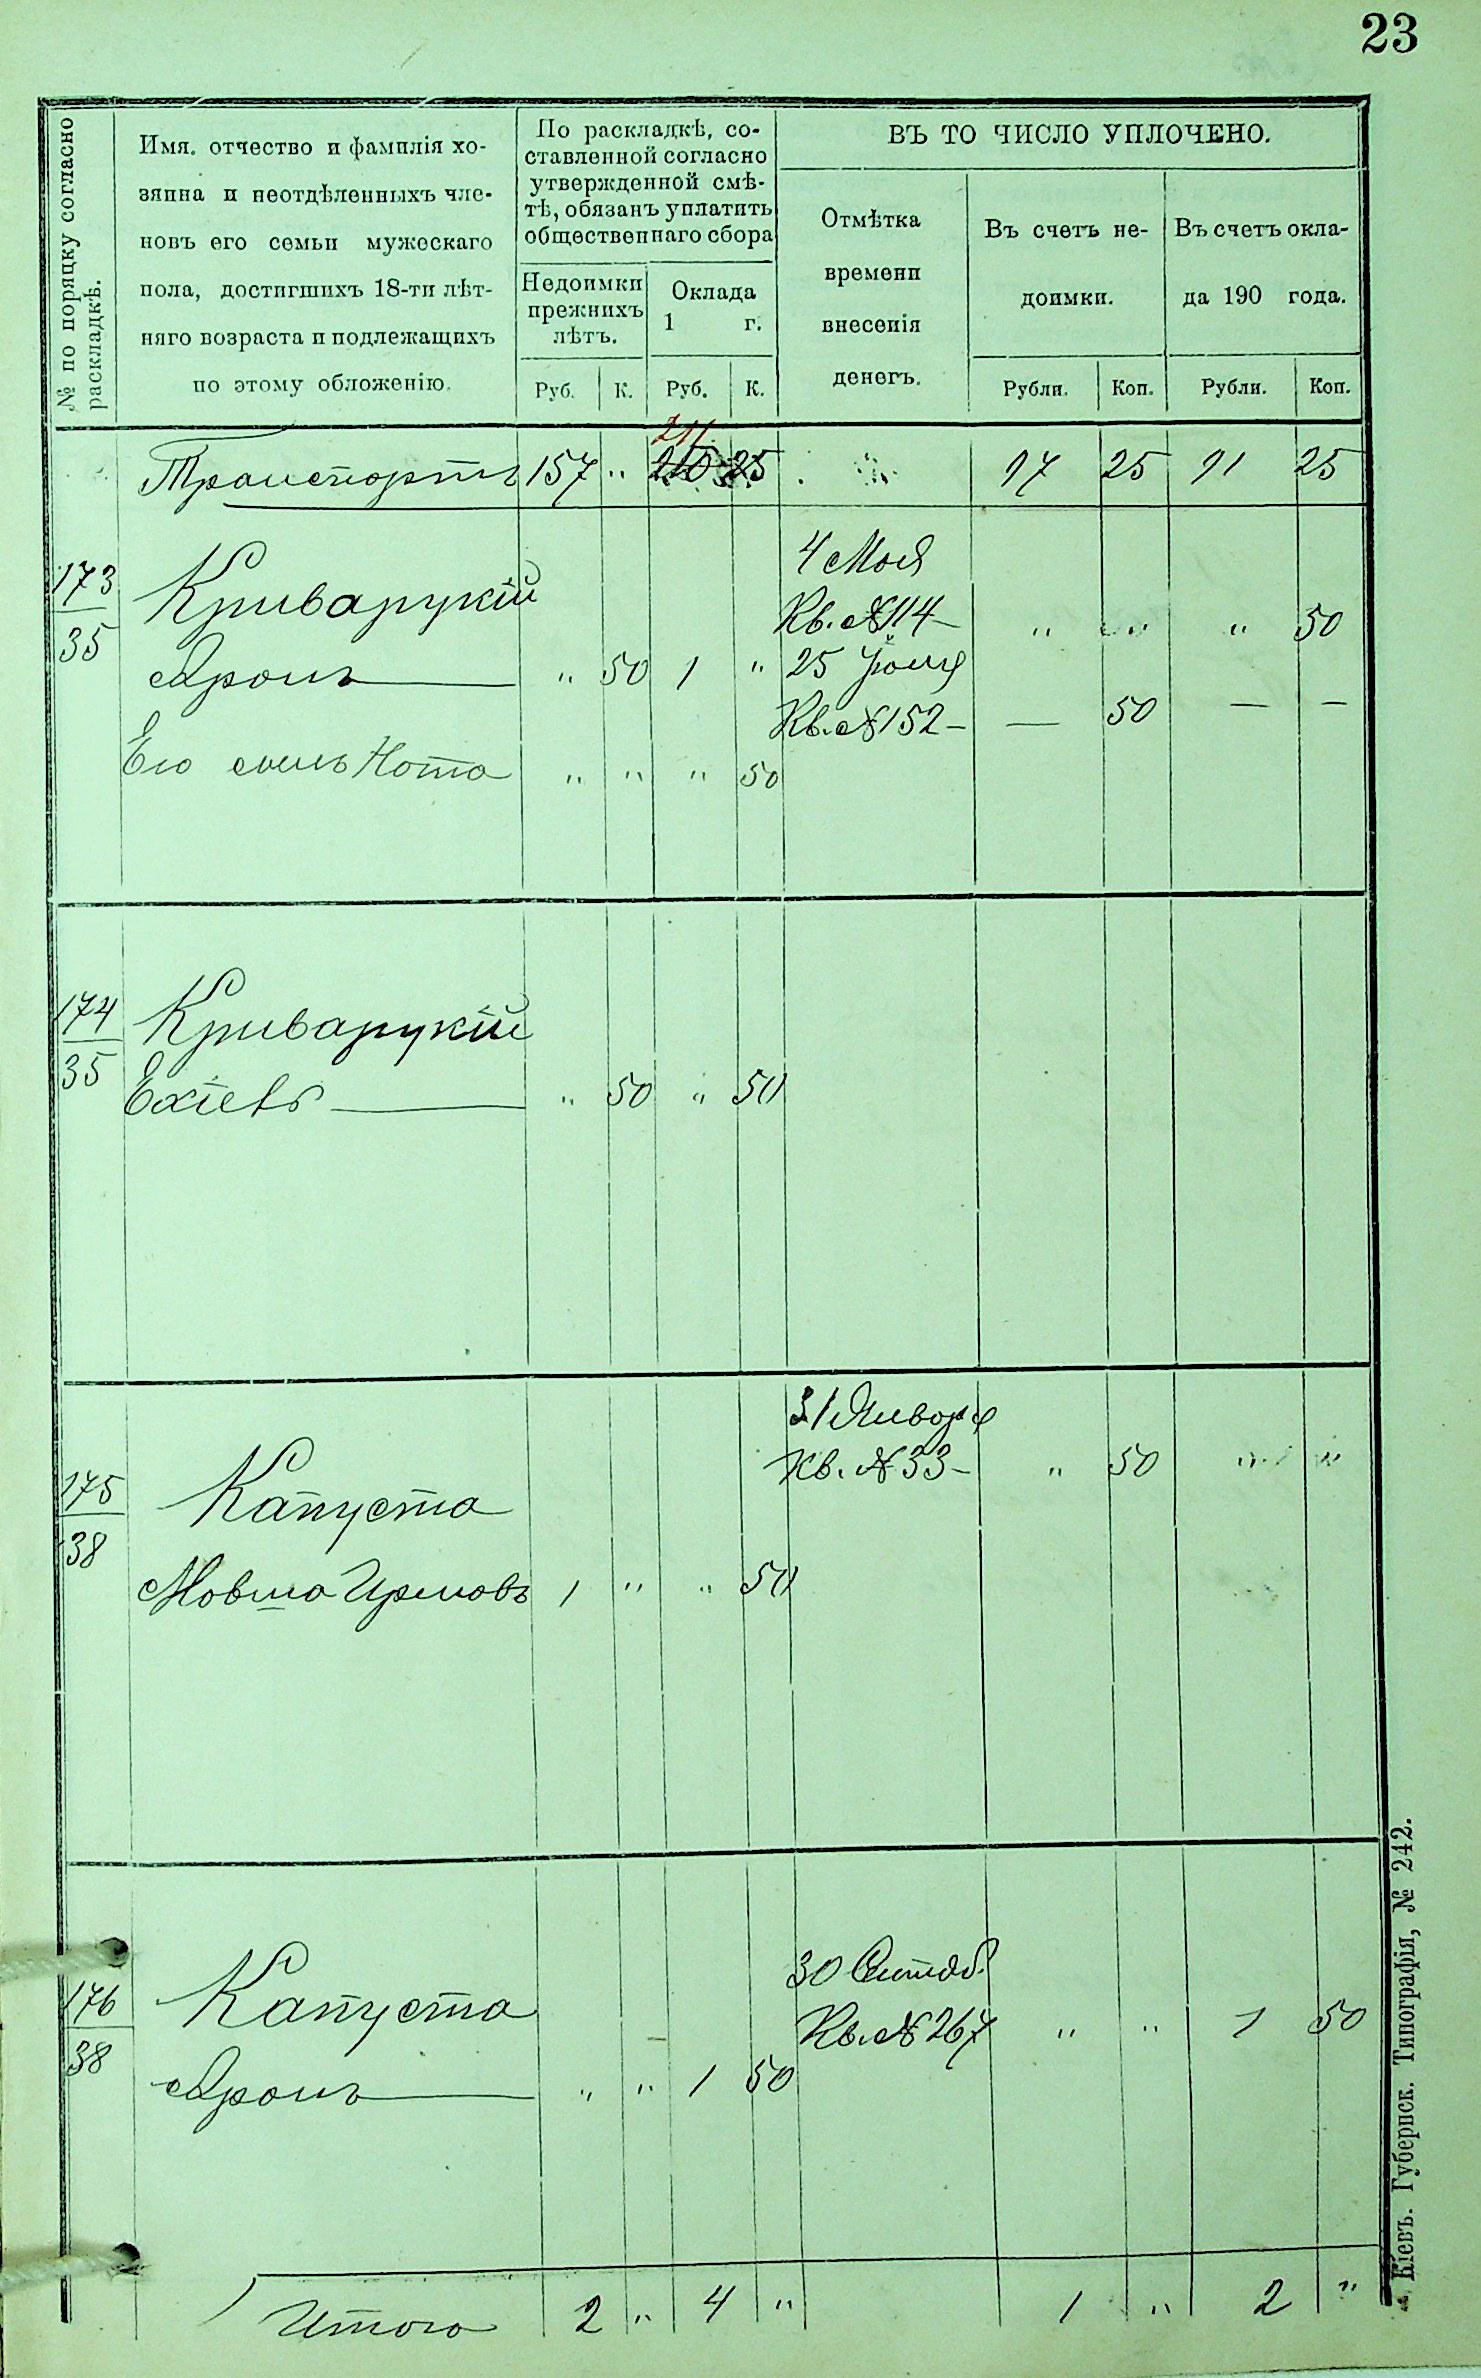 23
№ по порядку согласно раскладкѣ.
Имя. отчество и фамилія хо-
зяина и неотдѣленныхъ чле-
новъ его семьи мужескаго
пола, достигшихъ 18-ти лѣт-
няго возраста и подлежащихъ
по этому обложенію.
По раскладкѣ, со-
ставленной согласно
утвержденной смѣ-
тѣ, обязанъ уплатить
общественнаго сбора
Недоимки
прежнихъ
лѣтъ.
Оклада
1 г.
Руб. К. Руб. К.
ВЪ ТО ЧИСЛО УПЛОЧЕНО.
Отмѣтка
времени
внесенія
денегъ.
Въ счетъ не-
доимки.
Въ счетъ окла-
да 190 года.
Рубли. Коп. Рубли. Коп.
211
Транспортъ 157 " 210 25 17 25 11 25
173
35
Криварукій
Аронъ " 50 1 "
Его сынъ Нота " " " 50
4 Мая
Кв. № 114 " " " 50
25 Іюня
Кв. № 152 — 50 — —
174
35
Криварукій
Ехіевъ " 50 " 50
175
38
Капуста
Мовша Ирмовъ 1 " " 50
31 Января
Кв. № 33 " 50 " "
176
38
Капуста
Аронъ " " 1 50
30 Сентяб.
Кв. № 267 " " 1 50
Итого 2 " 4 " 1 " 2 "
Кіевъ. Губернск. Типографія, № 242.